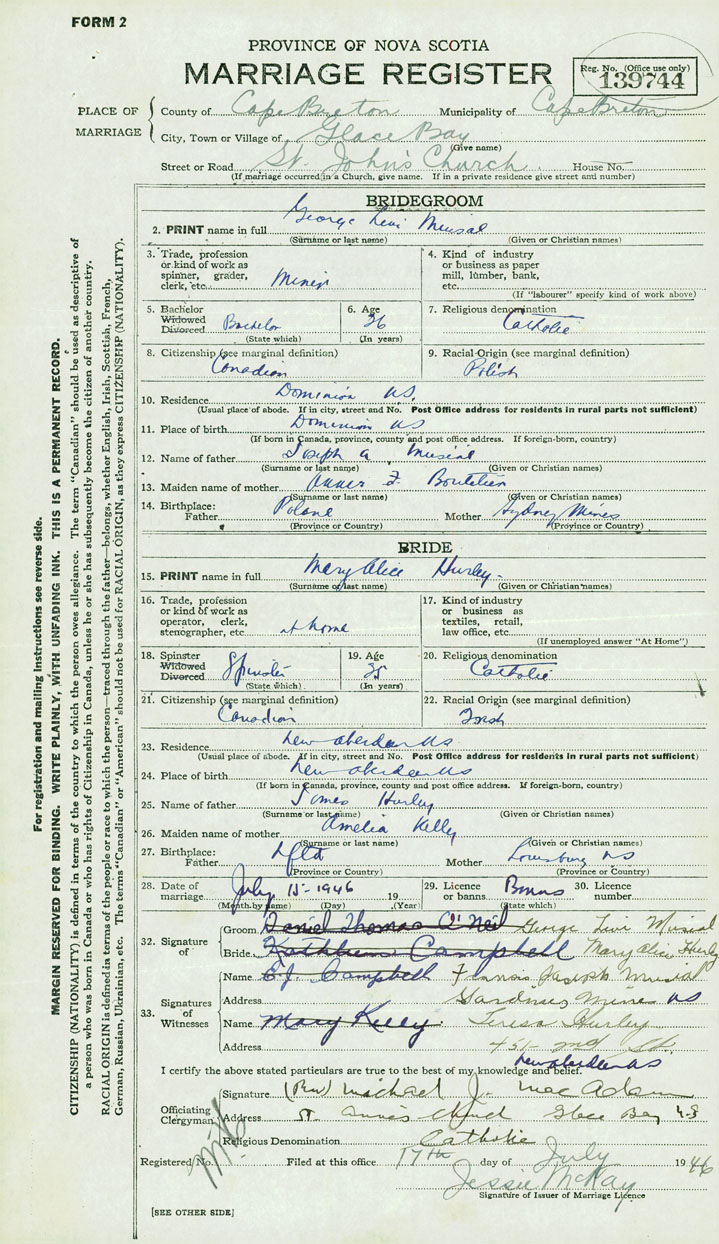 FORM 2
PROVINCE OF NOVA SCOTIA
MARRIAGE REGISTER
Reg. No. (Office use only)
139744
PLACE OF MARRIAGE
County of Cape Breton Municipality of Cape Breton
City, Town or Village of Glace Bay
(Give name)
Street or Road St. John's Church House No.
(If marriage occurred in a Church, give name. If in a private residence give street and number)
BRIDEGROOM
2. PRINT name in full George Levi Musial
(Surname or last name) (Given or Christian names)
3. Trade, profession or kind of work as spinner, grader, clerk, etc. Miner
4. Kind of industry or business as paper mill, lumber, bank, etc.
(If "labourer" specify kind of work above)
5. Bachelor Widowed Divorced Bachelor
(State which)
6. Age 26
(In years)
7. Religious denomination Catholic
8. Citizenship (see marginal definition) Canadian
9. Racial Origin (see marginal definition) Polish
10. Residence Dominion NS.
(Usual place of abode. If in city, street and No. Post Office address for residents in rural parts not sufficient)
11. Place of birth Dominion NS
(If born in Canada, province, county and post office address. If foreign-born, country)
12. Name of father Joseph A Musial
(Surname or last name) (Given or Christian names)
13. Maiden name of mother F. Boutilier
(Surname or last name) (Given or Christian names)
14. Birthplace: Father Poland Mother Sydney Mines
(Province or Country) (Province or Country)
BRIDE
15. PRINT name in full Mary Alice Hurley
(Surname or last name) (Given or Christian names)
16. Trade, profession or kind of work as operator, clerk, stenographer, etc. at home
17. Kind of industry or business as textiles, retail, law office, etc.
(If unemployed answer "At Home")
18. Spinster Widowed Divorced Spinster
(State which)
19. Age 25
(In years)
20. Religious denomination Catholic
21. Citizenship (see marginal definition) Canadian
22. Racial Origin (see marginal definition) Irish
23. Residence New Aberdeen NS
(Usual place of abode. If in city, street and No. Post Office address for residents in rural parts not sufficient)
24. Place of birth New Aberdeen NS
(If born in Canada, province, county and post office address. If foreign-born, country)
25. Name of father James Hurley
(Surname or last name) (Given or Christian names)
26. Maiden name of mother Amelia Kelly
(Surname or last name) (Given or Christian names)
27. Birthplace: Father Nfld Mother Louisburg NS
(Province or Country) (Province or Country)
28. Date of marriage July 15-1946 19
(Month by name) (Day) (Year)
29. Licence or banns Banns
(State which)
30. Licence number
32. Signature of
Groom Daniel Thomas O'Neil George Levi Musial
Bride Kathleen Campbell Mary Alice Hurley
33. Signatures of Witnesses
Name E.J. Campbell Francis Joseph Musial
Address Gardner Mines NS
Name Mary Kelly. Teresa Hurley
Address 45 2nd St.
New Aberdeen NS
I certify the above stated particulars are true to the best of my knowledge and belief.
Officiating Clergyman
Signature (Rev) Michael J. MacAdam
Address St. Anne's Church Glace Bay N.S
Religious Denomination Catholic
Registered No. Filed at this office 17th day of July 1946
Jessie McKay
Signature of Issuer of Marriage Licence
[SEE OTHER SIDE]
For registration and mailing instructions see reverse side.
MARGIN RESERVED FOR BINDING. WRITE PLAINLY, WITH UNFADING INK. THIS IS A PERMANENT RECORD.
CITIZENSHIP (NATIONALITY) is defined in terms of the country to which the person owes allegiance. The term "Canadian" should be used as descriptive of
a person who was born in Canada or who has rights of Citizenship in Canada, unless he or she has subsequently become the citizen of another country.
RACIAL ORIGIN is defined in terms of the people or race to which the person—traced through the father—belongs, whether English, Irish, Scottish, French,
German, Russian, Ukrainian, etc. The terms "Canadian" or "American" should not be used for RACIAL ORIGIN, as they express CITIZENSHIP (NATIONALITY).